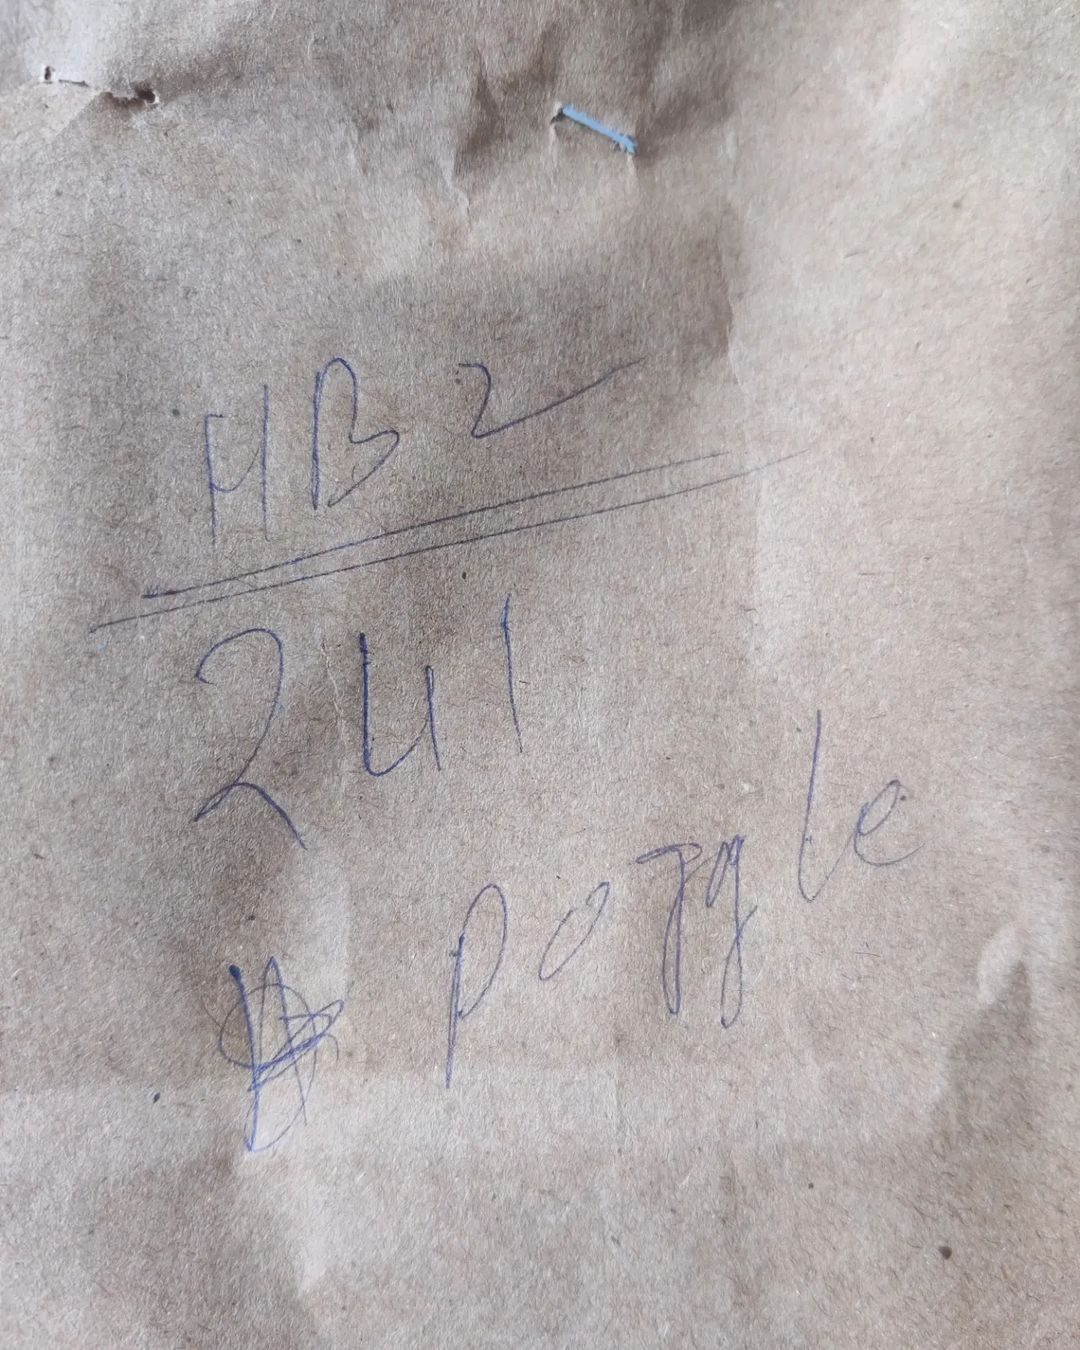 HB2
241
poggle